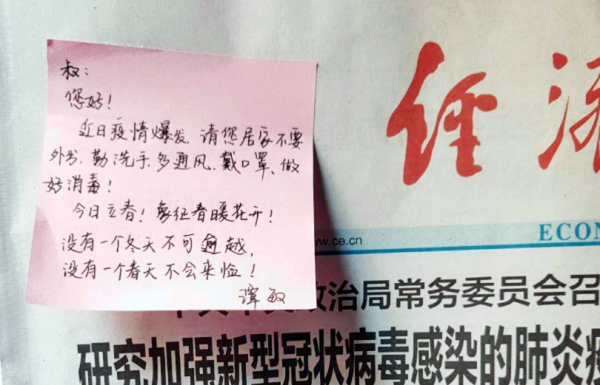 叔：
您好！
近日疫情爆发，请您居家不要
外出，勤洗手，多通风、戴口罩、做
好消毒！
今日立春！象征春暖花开！
没有一个冬天不可逾越，
没有一个春天不会来临！
谭敏
经济
www.ce.cn
ECON
政治局常务委员会召
研究加强新型冠状病毒感染的肺炎疫